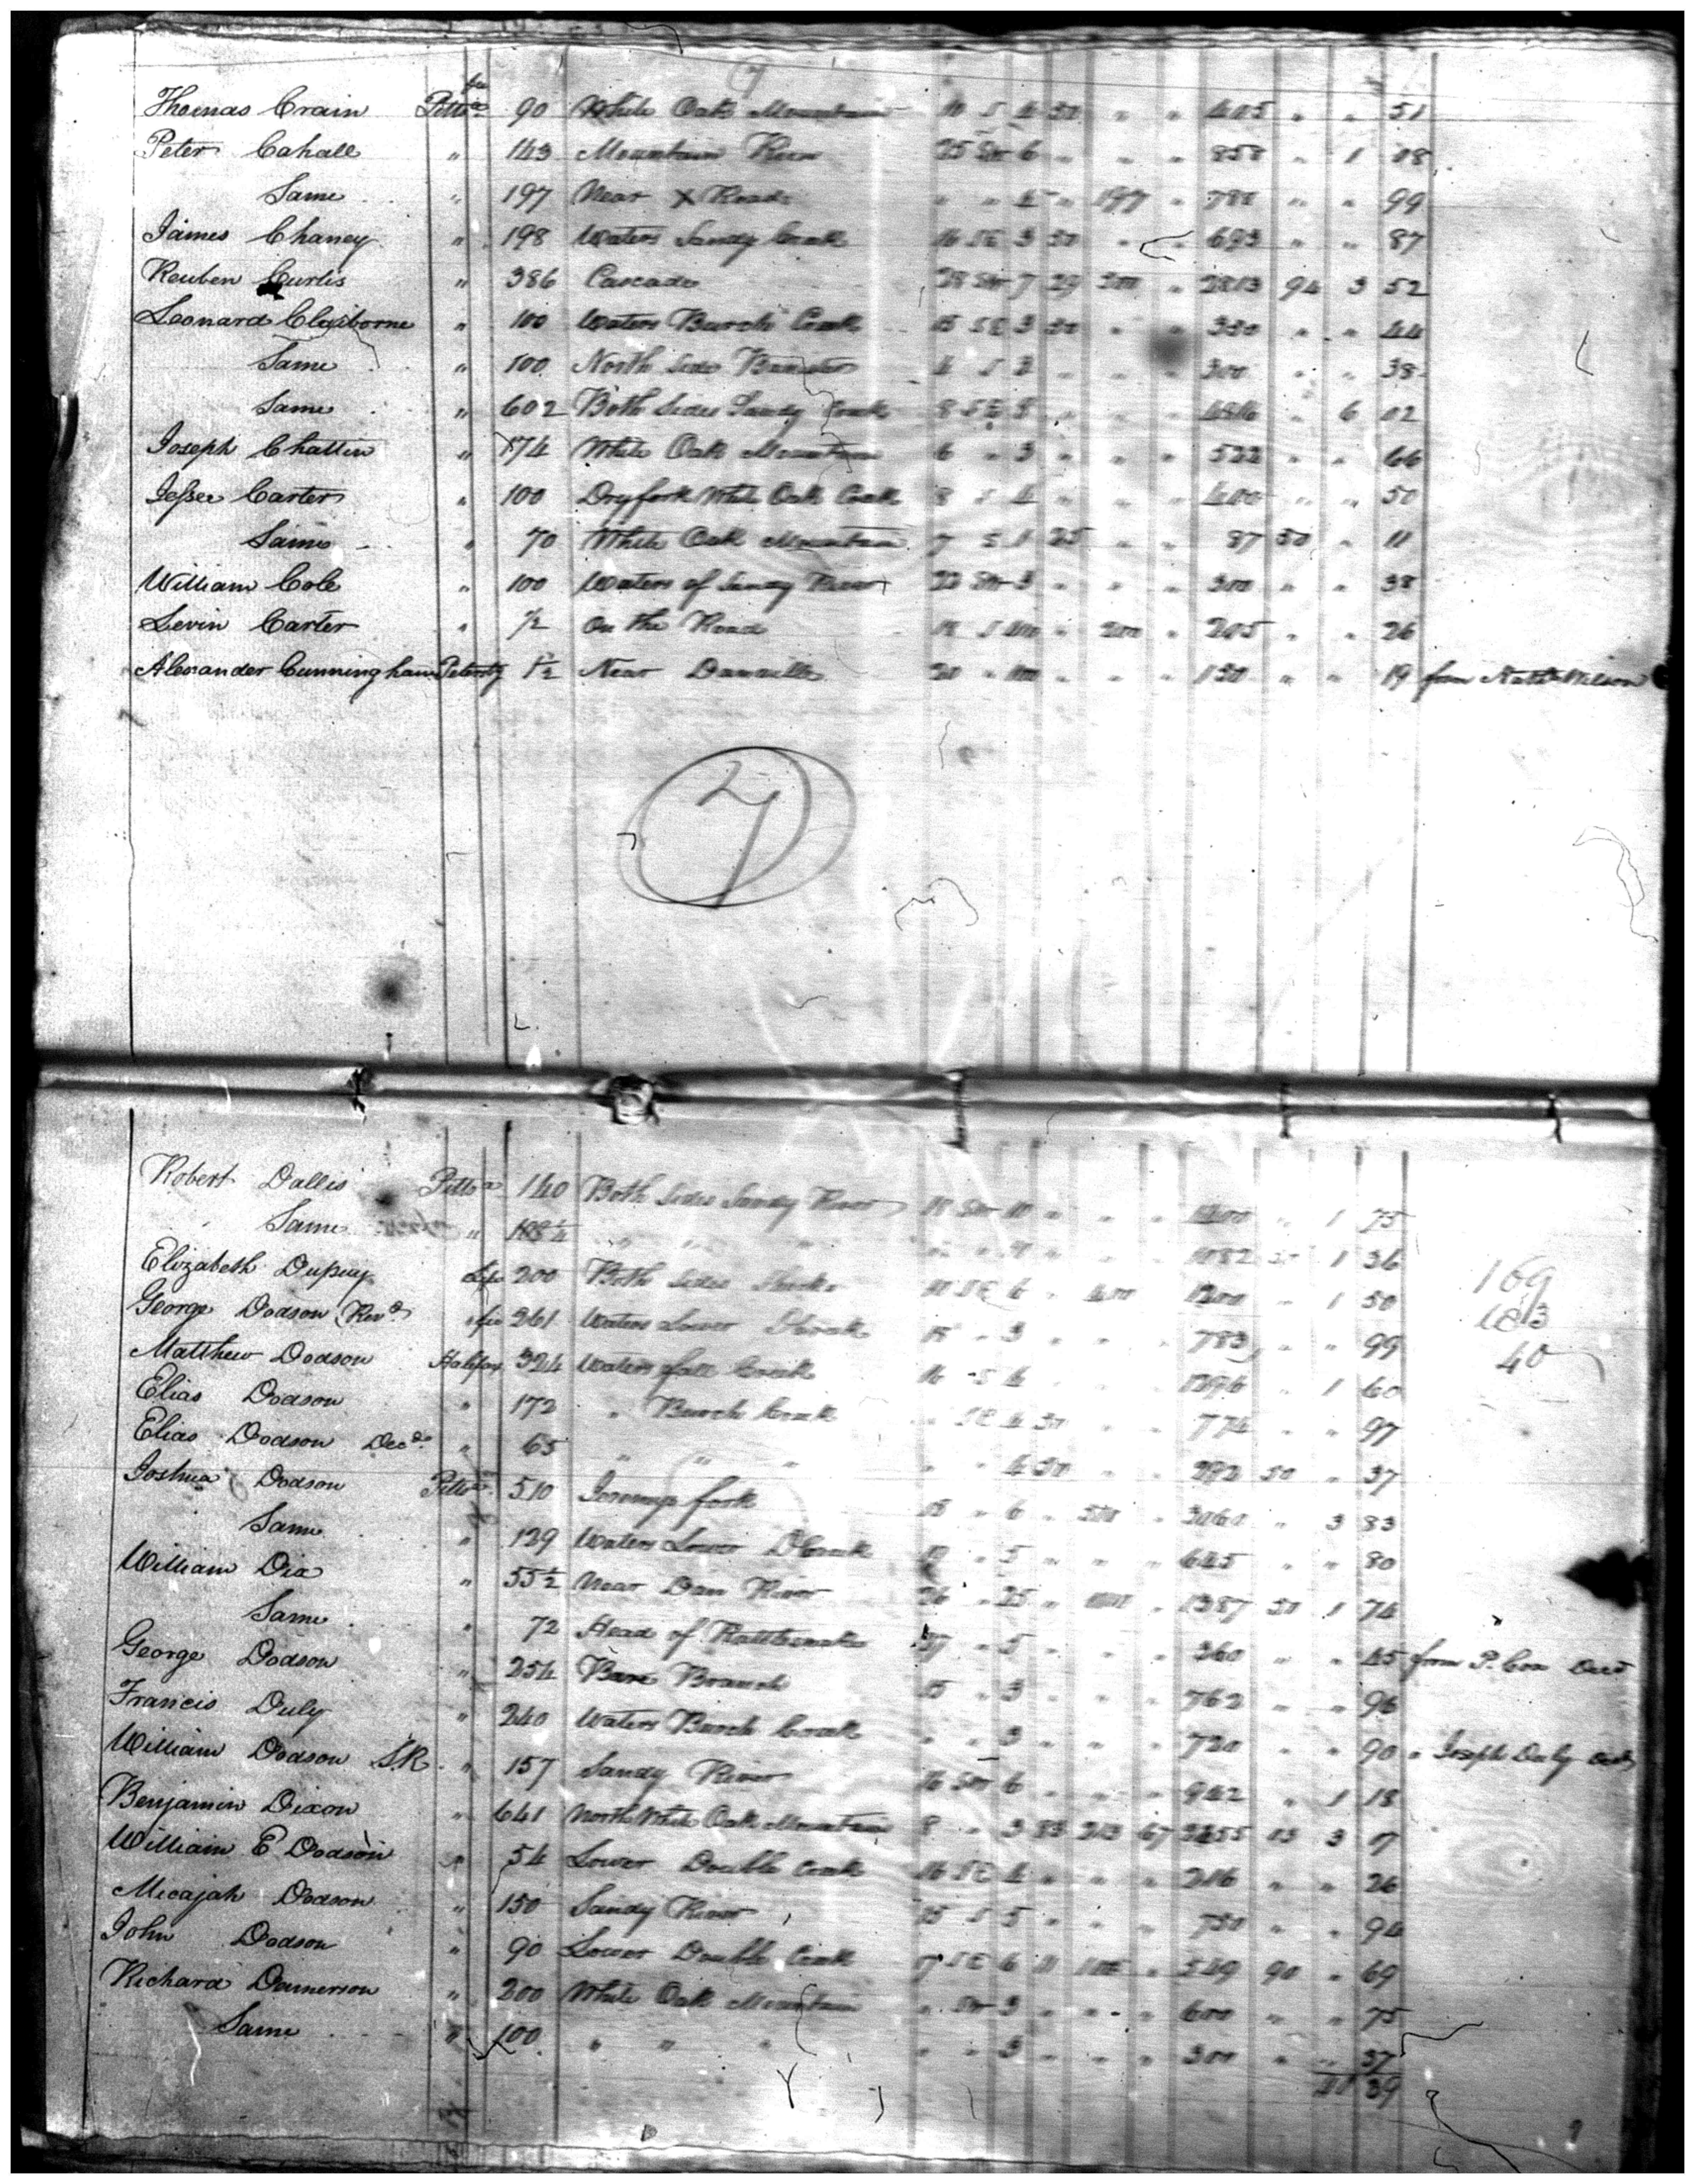 7
Thomas Crain Pittsa fee 90 White Oak Mountain 10 S 4 50 " " 405 " " 51
Peter Cahall " 143 Mountain Run 25 SW 6 " " " 858 " 1 08
Same " 197 Near X Roads " " 4 " 197 " 788 " " 99
James Chaney " 198 Waters Sandy Creek 16 SE 3 50 " " 693 " " 87
Reuben Curtis " 386 Cascade 28 SW 7 29 200 " 2813 94 3 52
Leonard Claiborne " 100 Waters Burch Creek 15 SE 3 50 " " 350 " " 44
Same " 100 North Side Banister 4 S 3 " " " 300 " " 38
Same " 602 Both Sides Sandy Creek 8 SE 8 " " " 4816 " 6 02
Joseph Chattin " 174 White Oak Mountain 6 " 3 " " " 522 " " 66
Jessee Carter " 100 Dryfork White Oak Creek 8 S 4 " " " 400 " " 50
Same " 70 White Oak Mountain 7 S 1 25 " " 87 50 " 11
William Cole " 100 Waters of Sandy River 22 SW 3 " " " 300 " " 38
Levin Carter " 1/2 On the Road S " 200 " 205 " " 26
Alexander Cunningham Petersbg 1 1/2 Near Danville 20 " 100 " " " 150 " " 19 from Nathl Wilson
7
Robert Dallis Pittsa 140 Both Sides Sandy River 18 SW 10 " " " 1400 " 1 75
Same " 108 1/4 " " " " " 10 " " " 1082 50 1 36
Elizabeth Dupuy Life 200 Both Sides 10 SE 6 " 400 1200 " 1 50 169
George Dodson (Revd) fee 261 Waters Lower D Creek 15 " 3 " " " 783 " " 99 1813
Matthew Dodson Halifax 324 Waters fall Creek 16 S 4 " " " 1296 " 1 60 40
Elias Dodson " 172 " Burch Creek " SE 4 50 " " 774 " " 97
Elias Dodson Decd " 65 " " " " " 4 50 " " 292 50 " 37
Joshua Dodson Pittsa 510 fork 15 " 6 " 500 " 3060 " 3 83
Same " 129 Waters Lower D Creek " 5 " " " 645 " " 80
William Dix " 55 1/2 Near Dan River 26 " 25 " " 1387 50 1 74
Same " 72 Head of Rattlesnake " 5 " " " 360 " " 45 from P. Cox Decd
George Dodson " 254 Bare Branch 15 " 3 " " " 762 " " 96
Francis Duly " 240 Waters Burch Creek " " 3 " " " 720 " " 90 " Joseph Duly Decd
William Dodson SR " 157 Sandy River 16 SW 6 " " " 942 " 1 18
Benjamin Dixon " 641 North White Oak Mountain 8 " 3 83 213 67 2455 13 3 07
William E Dodson " 54 Lower Double Creek 16 SE 4 " " " 216 " " 26
Micajah Dodson " 150 Sandy River 15 S 5 " " " 750 " " 94
John Dodson " 90 Lower Double Creek 17 SE 6 11 " 549 90 " 69
Richard Damerson " 200 White Oak Mountain " SW 3 " " " 600 " " 75
Same " 100 " " " " " 3 " " " 300 " " 37
39